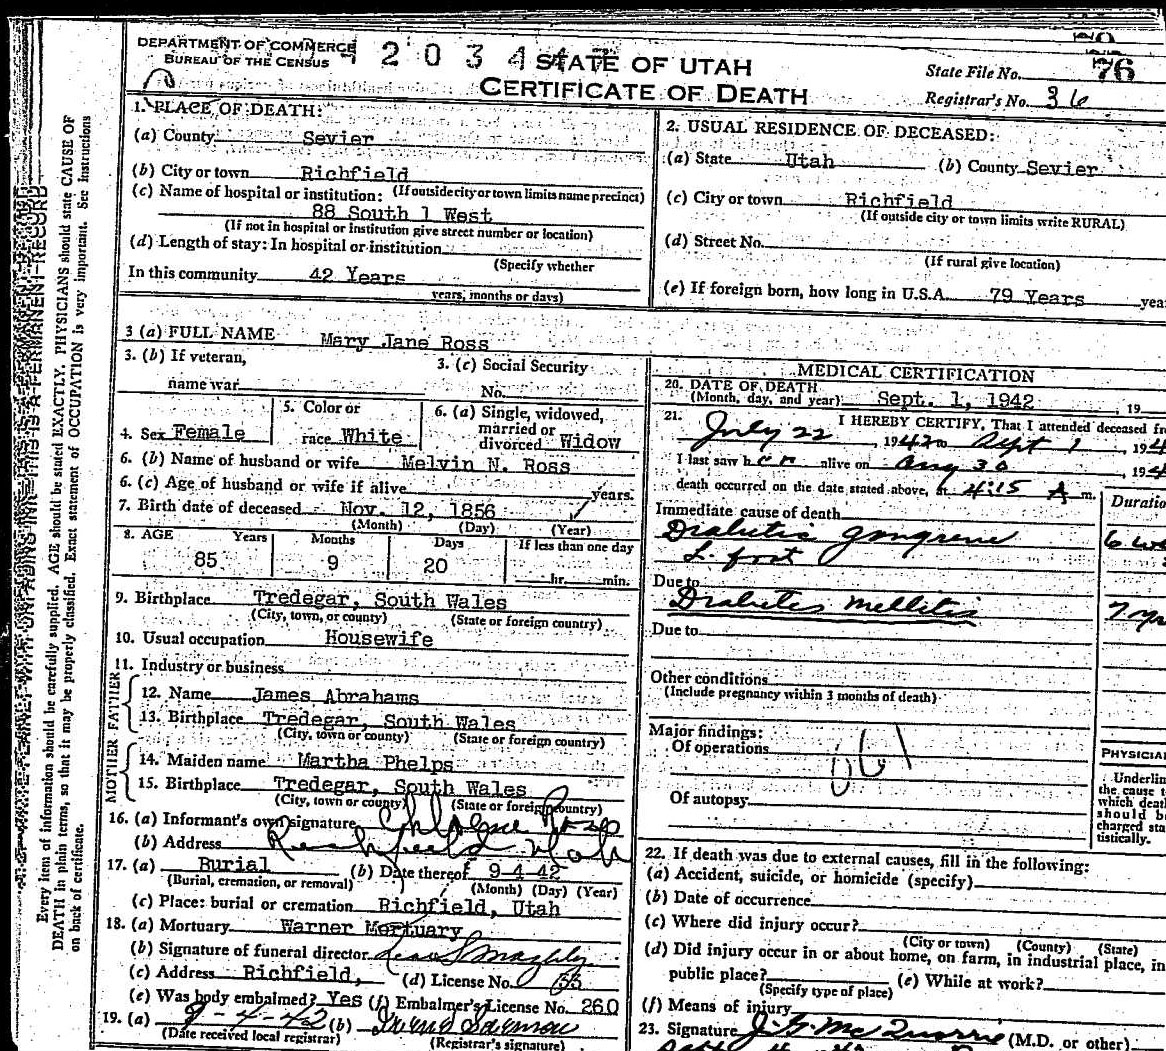 DEPARTMENT OF COMMERCE
BUREAU OF THE CENSUS
STATE OF UTAH
CERTIFICATE OF DEATH
State File No. 76
Registrar's No. 36
1. PLACE OF DEATH:
(a) County Sevier
(b) City or town Richfield
(c) Name of hospital or institution: (If outside city or town limits name precinct)
88 South 1 West
(If not in hospital or institution give street number or location)
(d) Length of stay: In hospital or institution
(Specify whether
In this community 42 Years
years, months or days)
2. USUAL RESIDENCE OF DECEASED:
(a) State Utah (b) County Sevier
(c) City or town Richfield
(If outside city or town limits write RURAL)
(d) Street No.
(If rural give location)
(e) If foreign born, how long in U.S.A. 79 Years yea
3 (a) FULL NAME Mary Jane Ross
3. (b) If veteran,
name war
3. (c) Social Security
No.
4. Sex Female
5. Color or
race White
6. (a) Single, widowed,
married or
divorced Widow
6. (b) Name of husband or wife Melvin N. Ross
6. (c) Age of husband or wife if alive years.
7. Birth date of deceased Nov. 12, 1856
(Month) (Day) (Year)
8. AGE Years Months Days If less than one day
85 9 20 hr. min.
9. Birthplace Tredegar, South Wales
(City, town, or county) (State or foreign country)
10. Usual occupation Housewife
11. Industry or business
FATHER
12. Name James Abrahams
13. Birthplace Tredegar, South Wales
(City, town or county) (State or foreign country)
MOTHER
14. Maiden name Martha Phelps
15. Birthplace Tredegar, South Wales
(City, town or county) (State or foreign country)
16. (a) Informant's own signature Ross
(b) Address Richfield Utah
17. (a) Burial (b) Date thereof 9-4-42
(Burial, cremation, or removal) (Month) (Day) (Year)
(c) Place: burial or cremation Richfield, Utah
18. (a) Mortuary Warner Mortuary
(b) Signature of funeral director
(c) Address Richfield, (d) License No.
(e) Was body embalmed? Yes (f) Embalmer's License No. 260
19. (a) 9-4-42 (b)
(Date received local registrar) (Registrar's signature)
MEDICAL CERTIFICATION
20. DATE OF DEATH
(Month, day, and year) Sept. 1, 1942, 19
21. I HEREBY CERTIFY, That I attended deceased fr
July 22, 1942 to Sept 1, 194
I last saw her alive on Aug 30 194
death occurred on the date stated above, at 4:15 A m.
Duratio
Immediate cause of death
Diabetic gangrene
L. foot
6 w
Due to
Diabetes mellitis
7 yr
Due to
Other conditions
(Include pregnancy within 3 months of death)
Major findings:
Of operations
061
Of autopsy
PHYSICIA
Underlin
the cause t
which deat
should b
charged sta
tistically.
22. If death was due to external causes, fill in the following:
(a) Accident, suicide, or homicide (specify)
(b) Date of occurrence
(c) Where did injury occur?
(City or town) (County) (State)
(d) Did injury occur in or about home, on farm, in industrial place, in
public place? (e) While at work?
(Specify type of place)
(f) Means of injury
23. Signature J. G. McQuarrie (M.D. or other)
Every item of information should be carefully supplied. AGE should be stated EXACTLY. PHYSICIANS should state CAUSE OF
DEATH in plain terms, so that it may be properly classified. Exact statement of OCCUPATION is very important. See instructions
on back of certificate.